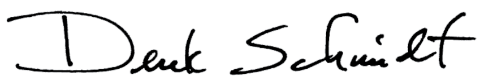 Derek Schmidt